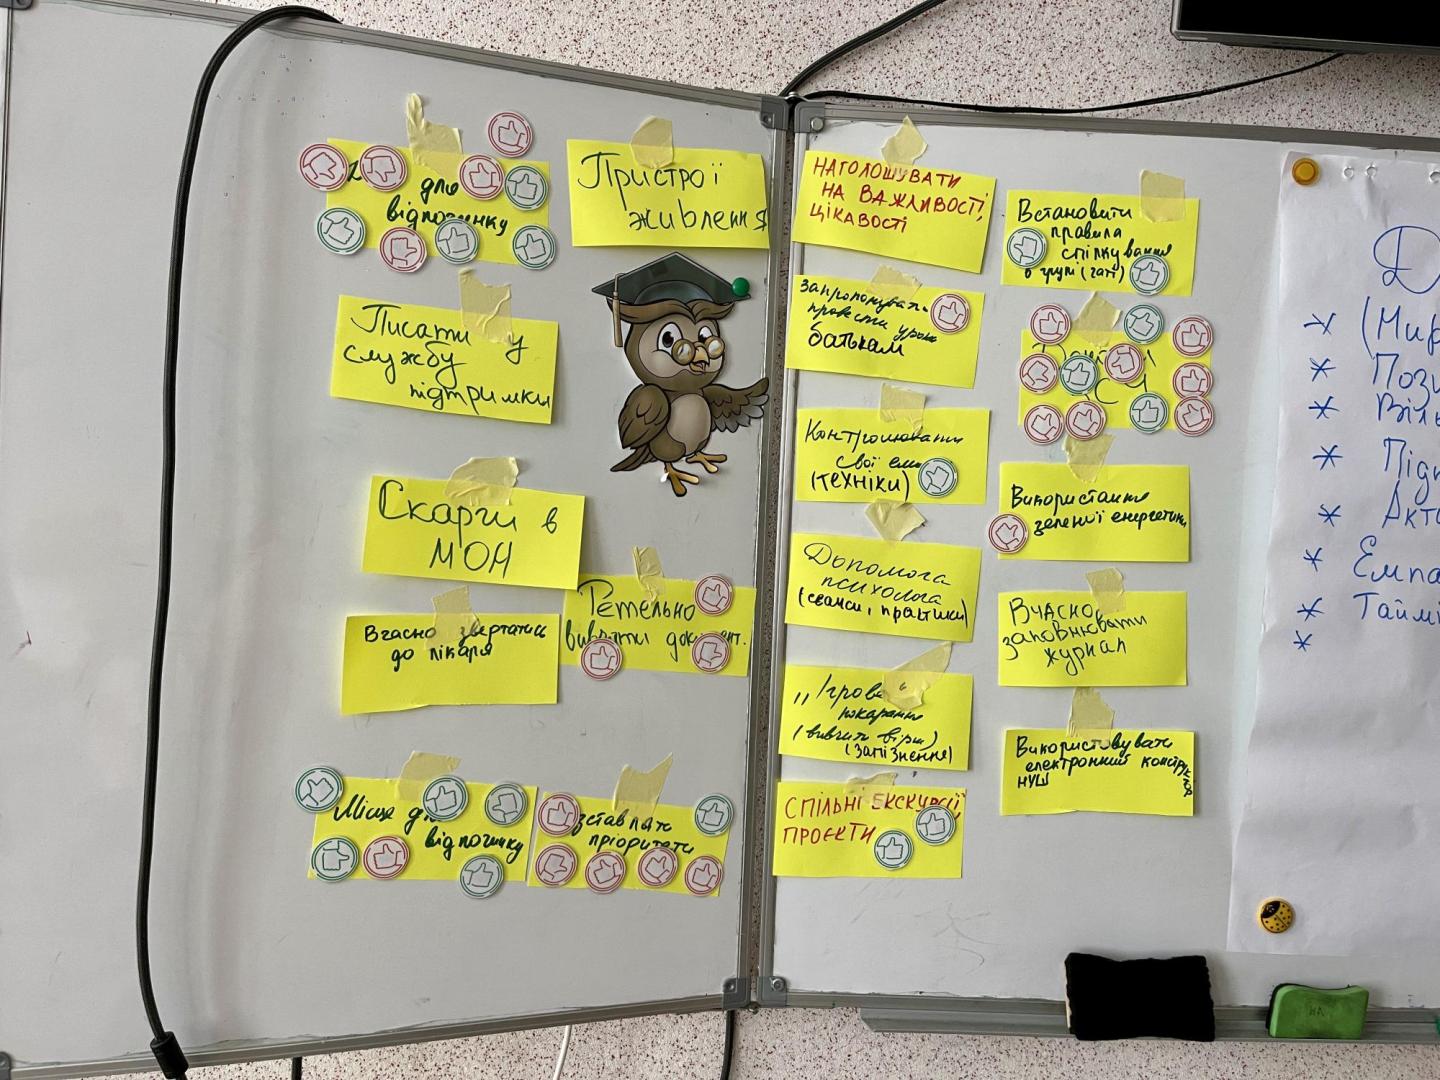 для
відпочинку
Пристрої
живлення
Писати у
службу
підтримки
Скарги в
МОН
Ретельно
вивчати документ.
Вчасно звертатись
до лікаря
Місце для
відпочинку
пріоритети
НАГОЛОШУВАТИ
НА ВАЖЛИВОСТІ,
ЦІКАВОСТІ
Запропонувати
провести урок
батькам
Контролювати
свої
(техніки)
Допомога
психолога
(сеанси, практики)
,,Ігрове"
покарання
(вивчити вірш)
(запізнення)
СПІЛЬНІ ЕКСКУРСІЇ,
ПРОЕКТИ
Встановити
правила
спілкування
в групі (чаті)
Використання
зеленої енергетики
Вчасно
заповнювати
журнал
Використовувати
електронний конструктор
НУШ